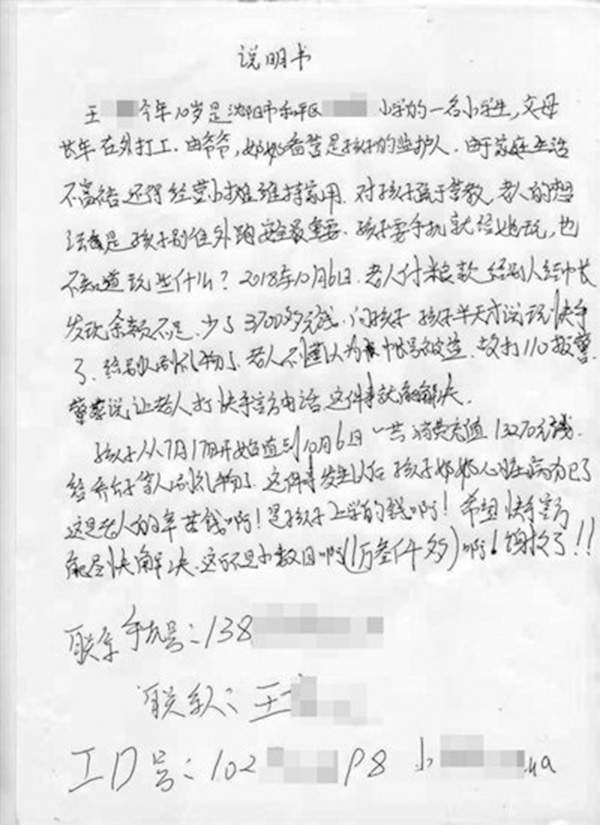 说明书
王 今年10岁是沈阳市和平区 小学的一名小学生,父母
长年在外打工.由爷爷,奶奶看管是孩子的监护人.由于家庭生活
不富裕还得经营小摊维持家用.对孩子疏于管教,老人的想
法就是孩子别往外跑安全最重要.孩子要手机就给她玩,也
不知道玩些什么?2018年10月6日.老人付粮款给别人经中长
发现余款不足.少了3700多元钱.问孩子 孩子半天才说玩快手
了.给别人刷礼物了.老人不懂认为 号被盗.故打110报警.
警察说让老人打快手官方电话.这件事就能解决.
孩子从7月17日开始直到10月6日一共消费充值13270元钱.
给乔 等人刷礼物了.这件事发生以后孩子奶奶心脏病犯了
这是老人的辛苦钱啊!是孩子上学的钱啊!希望快手官方
能尽快解决.这可不是小数目啊(1万叁仟多)啊!谢谢了!!
联系手机号:138
联系人:王
ID号:102 P8 小 ya